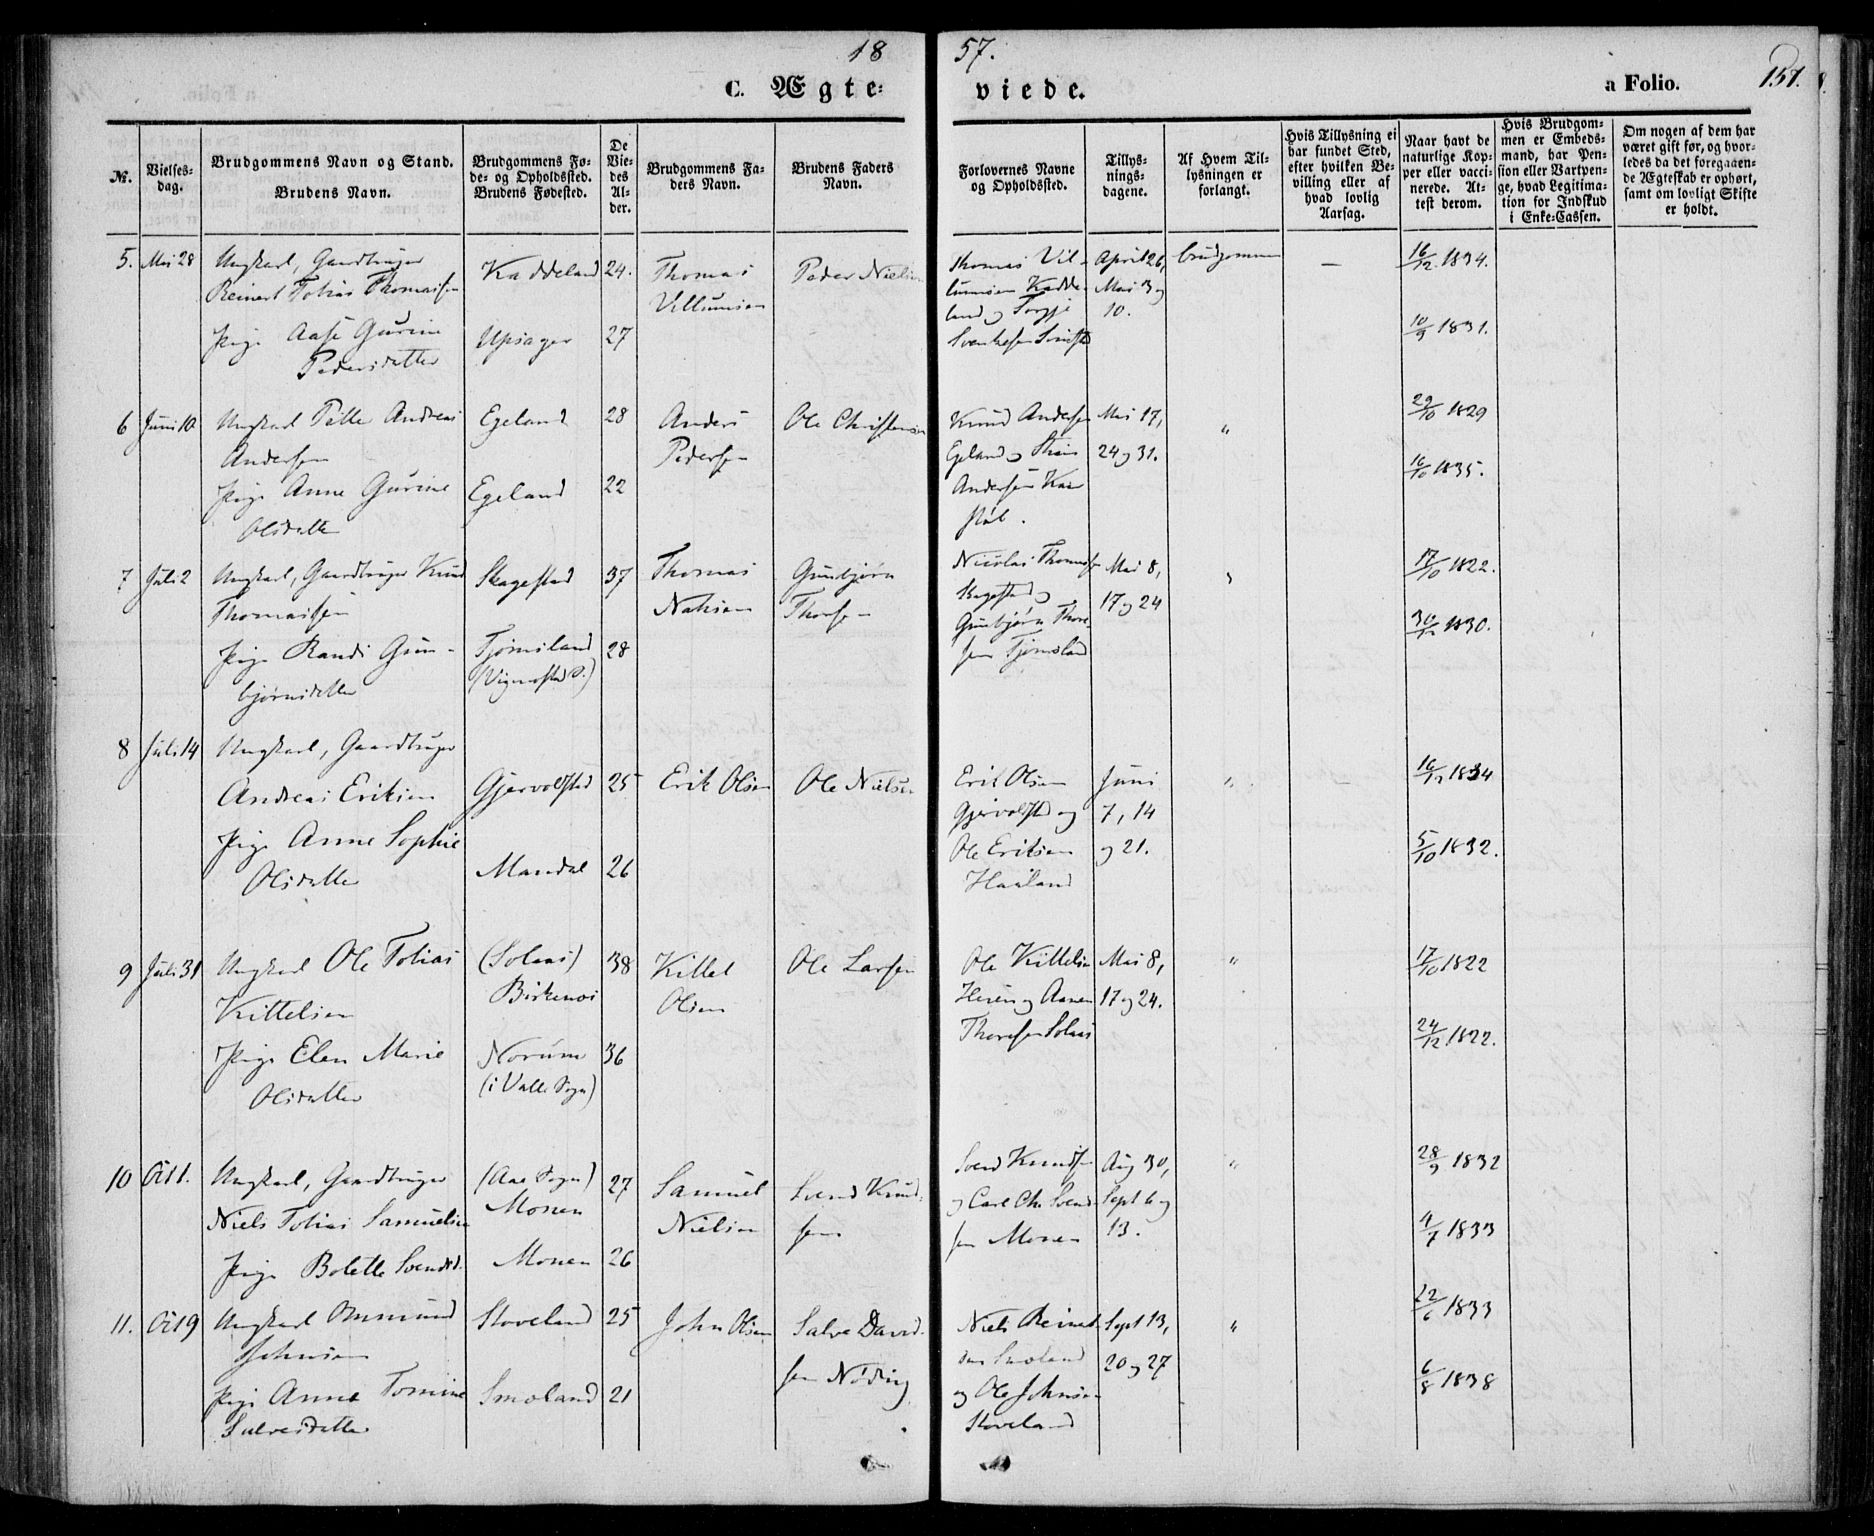 18 57.
C. Ægte= viede. a Folio. 151.
№.
Vielses-
dag.
Brudgommens Navn og Stand.
Brudens Navn.
Brudgommens Fø-
de- og Opholdssted.
Brudens Fødested.
De
Vie-
des
Al-
der.
Brudgommens Fa-
ders Navn.
Brudens Faders
Navn.
Forlovernes Navne
og Opholdssted.
Tillys-
nings-
dagene.
Af Hvem Til-
lysningen er
forlangt.
Hvis Tillysning ei
har fundet Sted,
efter hvilken Be-
villing eller af
hvad lovlig
Aarsag.
Naar havt de
naturlige Kop-
per eller vacci-
nerede. At-
test derom.
Hvis Brudgom-
men er Embeds-
mand, har Pen-
sion eller Vartpen-
ge, hvad Legitima-
tion for Indskud
i Enke-Cassen.
Om nogen af dem har
været gift før, og hvor-
ledes da det foregaaen-
de Ægteskab er ophørt,
samt om lovligt Skifte
er holdt.
5. Mai 28 Ungkarl, Gaardbruger Kaddeland 24. Thomas Peder Nielsen Thomas Vil- April 26, brudgommen — 16/12 1834.
Reinert Tobias Thomassen Villumsen lumsen Kadde- Mai 3 og
land og Torgje 10.
Pige Aase Gurine Upsager 27 Svenkesen 10/9 1831.
Pedersdatter
6 Juni 10 Ungkarl Pelle Andreas Egeland 28 Anders Ole Christensen Knud Andersen Mai 17, " 29/10 1829
Andersen Pedersen Egeland og 24 og 31.
Pige Anne Gurine Egeland 22 Andersen 16/10 1835.
Olsdatter
7 Juli 2 Ungkarl, Gaardbruger Knud Skagestad 37 Thomas Gunbjørn Nicolai Thomassen Mai 8, " 17/10 1822.
Thomassen Thorsen Skagestad og 17 og 24
Gunbjørn Thore
Pige Randi Gun- Tjømsland 28 sen Tjømsland 30/12 1830.
bjørnsdatter
8 Juli 14 Ungkarl, Gaardbruger
Andreas Eriksen Gjervolstad 25 Erik Olsen Ole Nielsen Erik Olsen Juni " — 16/12 1834
Gjervolstad og 7, 14
Pige Anne Sophie Mandal 26 Ole Eriksen og 21. 5/10 1832.
Olsdatter Haaland
9 Juli 31 Ungkarl Ole Tobias (Solaas) 38 Kittel Ole Larsen Ole Kittelsen Mai 8, " 17/10 1822
Kittelsen Birkenes Olsen og Aanen 17 og 24.
Pige Elen Marie Norum 36 Thoresen Solaas 24/12 1822.
Olsdatter (i Valle Sogn)
10 Oct 1. Ungkarl, Gaardbruger (Aae Sogn) 27 Samuel Svend Knud- Svend Knudsen Aug 30, " 28/9 1832
Niels Tobias Samuelsen Monen Nielsen sen og Carl Chr. Svend- Sept 6 og
Pige Bolette Svendsd. Monen 26 sen Monen 13. 4/7 1833
11. Oct 9 Ungkarl Ommund Stoveland 25 John Olsen Salve David- Niels Reinert- Sept 13, " 22/6 1833
Johnsen sen Nøding sen Smoland 20 og 27
Pige Anne Tomine Smoland 21 og Ole Johnsen 6/8 1838
Salvesdatter Stoveland